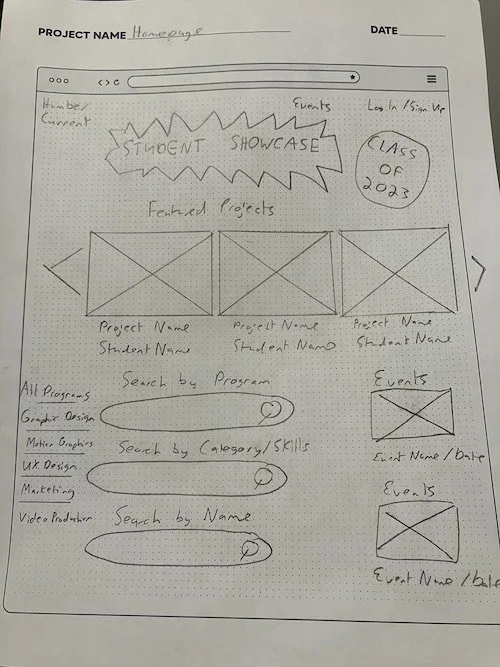 PROJECT NAME Homepage DATE
Humber
Current
Events
Log In / Sign Up
STUDENT SHOWCASE
CLASS
OF
2023
Featured Projects
Project Name
Student Name
Project Name
Student Name
Project Name
Student Name
All Programs
Graphic Design
Motion Graphics
UX Design
Marketing
Video Production
Search by Program
Search by Category/Skills
Search by Name
Events
Event Name / Date
Events
Event Name / Date